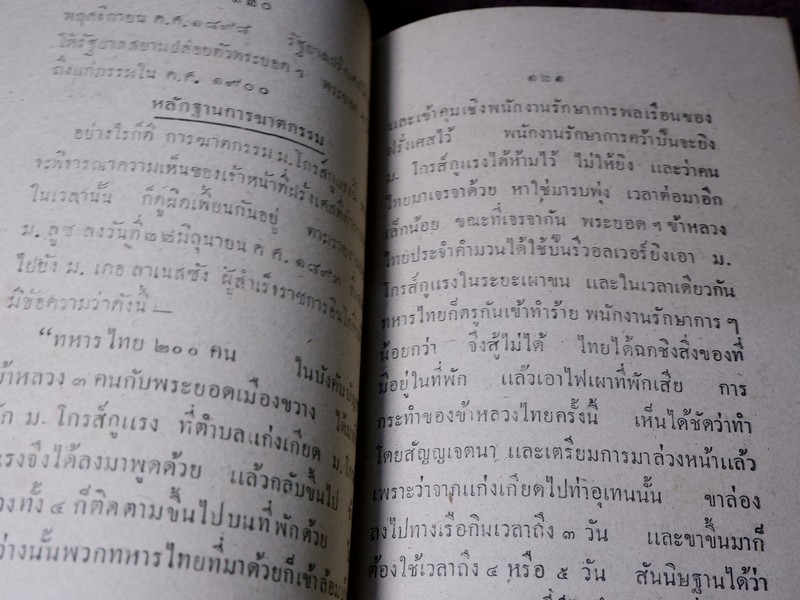 ๑๒๐
พฤศจิกายน ค.ศ. ๑๘๙๘ รัฐบาลฝรั่งเศส
ให้รัฐบาลสยามปล่อยตัวพระยอด ฯ พระยอด
ถึงแก่กรรมใน ค.ศ. ๑๙๐๐
หลักฐานการฆาตกรรม
อย่างไรก็ดี การฆาตกรรม ม. โกรส์กูแรง
จะพิจารณาความเห็นของเจ้าหน้าที่ฝรั่งเศส
ในเวลานั้น ก็ดูผิดเพี้ยนกันอยู่ ตามราย
ม. ลูซ ลงวันที่ ๒๒ มิถุนายน ค.ศ. ๑๘๙๓
ไปยัง ม. เดอ ลาเนสซัง ผู้สำเร็จราชการอินโด
มีข้อความว่าดังนี้ —
“ทหารไทย ๒๐๐ คน ในบังคับบัญ
ข้าหลวง ๓ คนกับพระยอดเมืองขวาง ได้มา
ัก ม. โกรส์กูแรง ที่ตำบลแก่งเกียด ม. โก
แรงจึงได้ลงมาพูดด้วย แล้วกลับขึ้นไป
วงทั้ง ๔ ก็ติดตามขึ้นไปบนที่พักด้วย
ว่างนั้นพวกทหารไทยที่มาด้วยก็เข้าล้อม
๑๒๑
และเข้าคุมเชิงพนักงานรักษาการพลเรือนของ
ฝรั่งเศสไว้ พนักงานรักษาการคว้าปืนจะยิง
ม. โกรส์กูแรงได้ห้ามไว้ ไม่ให้ยิง และว่าคน
ไทยมาเจรจาด้วย หาใช่มารบพุ่ง เวลาต่อมาอีก
เล็กน้อย ขณะที่เจรจากัน พระยอด ฯ ข้าหลวง
ไทยประจำคำมวนได้ใช้ปืนรีวอลเวอร์ยิงเอา ม.
โกรส์กูแรงในระยะเผาขน และในเวลาเดียวกัน
ทหารไทยก็ตรูกันเข้าทำร้าย พนักงานรักษาการ ฯ
น้อยกว่า จึงสู้ไม่ได้ ไทยได้ฉกชิงสิ่งของที่
มีอยู่ในที่พัก แล้วเอาไฟเผาที่พักเสีย การ
กระทำของข้าหลวงไทยครั้งนี้ เห็นได้ชัดว่าทำ
โดยสัญญเจตนา และเตรียมการมาล่วงหน้าแล้ว
เพราะว่าจากแก่งเกียดไปท่าอุเทนนั้น ขาล่อง
ลงไปทางเรือกินเวลาถึง ๓ วัน และขาขึ้นมาก็
ต้องใช้เวลาถึง ๔ หรือ ๕ วัน สันนิษฐานได้ว่า